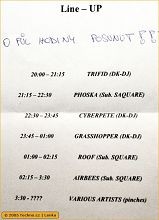 Line – UP
O PŮL HODINY POSUNOT !!
20:00 – 21:15 TRIFID (DK-DJ)
21:15 – 22:30 PHOSKA (Sub. SAQUARE)
22:30 – 23:45 CYBERPETE (DK-DJ)
23:45 – 01:00 GRASSHOPPER (DK-DJ)
01:00 – 02:15 ROOF (Sub. SQUARE)
02:15 – 3:30 AIRBEES (Sub. SQUARE)
3:30 - ???? VARIOUS ARTISTS (pinches)
© 2005 Techno.cz | Lenka